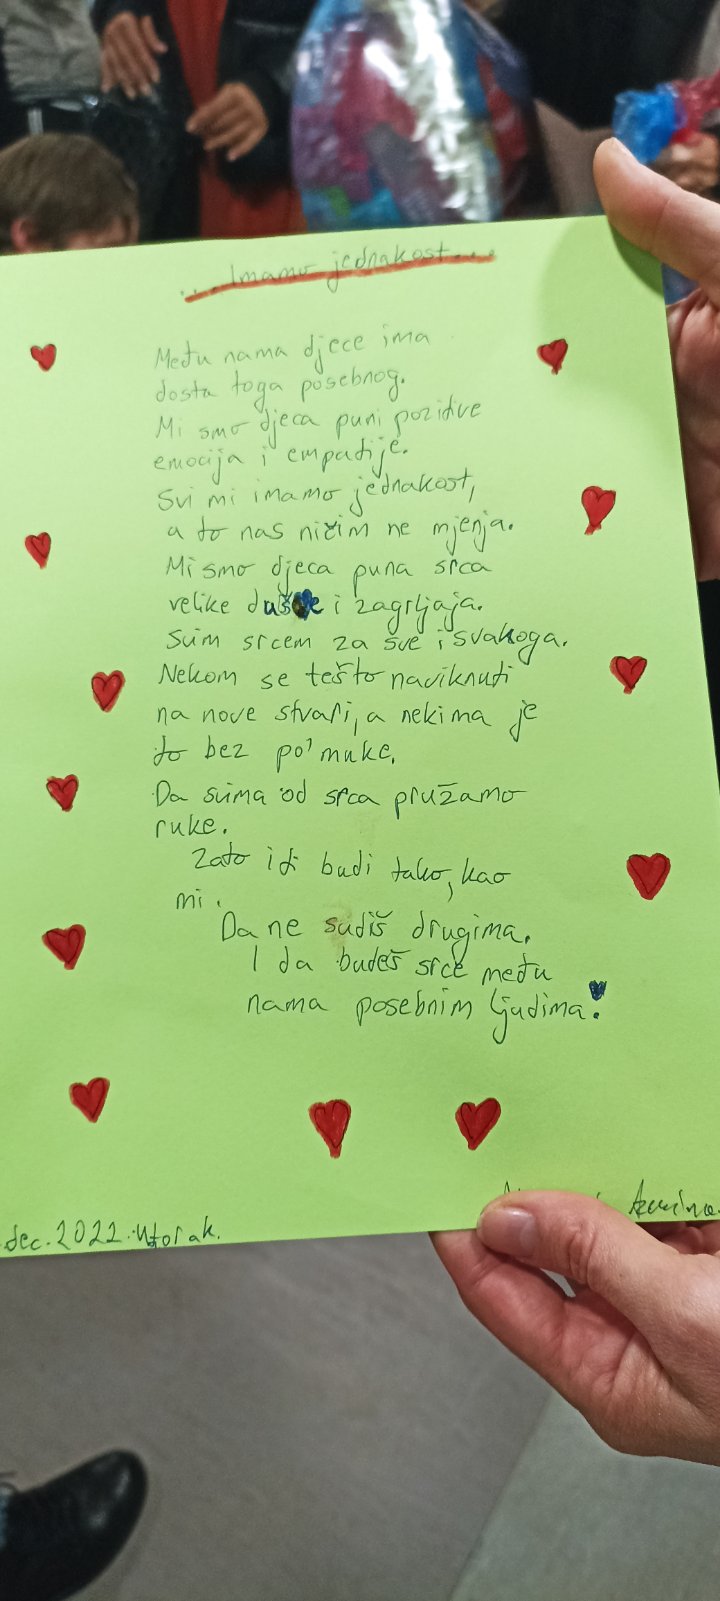 ...Imamo jednakost...
Među nama djece ima
dosta toga posebnog.
Mi smo djeca puni pozitive
emocija i empatije.
Svi mi imamo jednakost,
a to nas ničim ne mjenja.
Mi smo djeca puna srca
velike duše i zagrljaja.
Svim srcem za sve i svakoga.
Nekom se tešto naviknuti
na nove stvari, a nekima je
to bez po' muke.
Da svima od srca pružamo
ruke.
Zato i ti budi tako, kao
mi.
Da ne sudiš drugima.
I da budeš srce među
nama posebnim ljudima.
dec. 2022. Utorak.